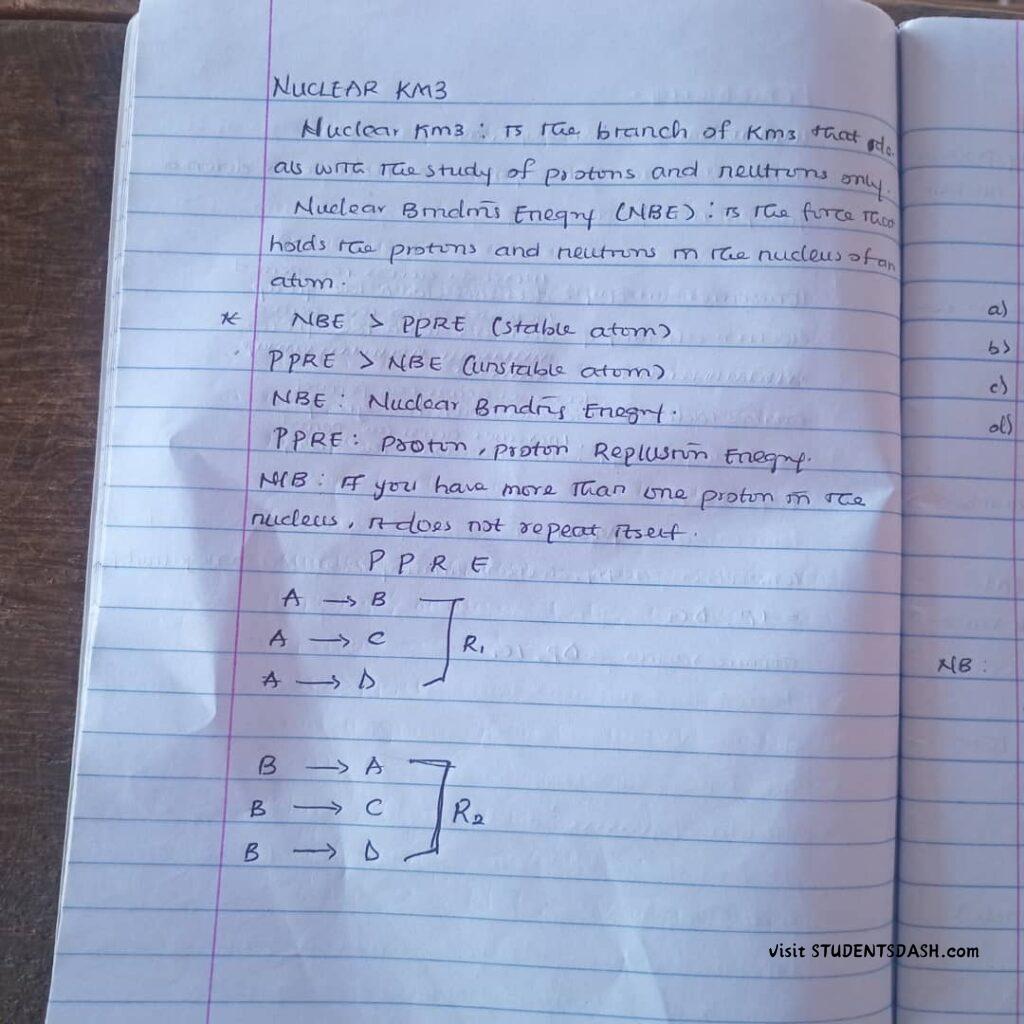 NUCLEAR KM3
Nuclear Km3 : is the branch of Km3 that de
als with the study of protons and neutrons only.
Nuclear Bindinḡ Eneqry (NBE) : is the force
holds the protons and neutrons in the nucleus of an
atom.
* NBE > PPRE (stable atom)
PPRE > NBE (unstable atom)
NBE : Nuclear Bindinḡ Eneqry.
PPRE : proton, proton Replusion Eneqry.
NB : If you have more than one proton in the
nucleus, it does not repeat itself.
P P R E
A → B
A → C R1
A → D
B → A
B → C R2
B → D
a)
b)
c)
d)
NB :
visit STUDENTSDASH.com